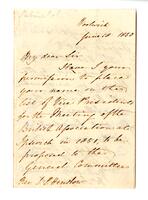 June 18 1850
My dear Sir
Have I your
permission to place
your name in the
list of Vice Presidents
for the Meeting of the
British Association at
Ipswich in 1851, to be
proposed to the
General Committee
Rev. J S Henslow